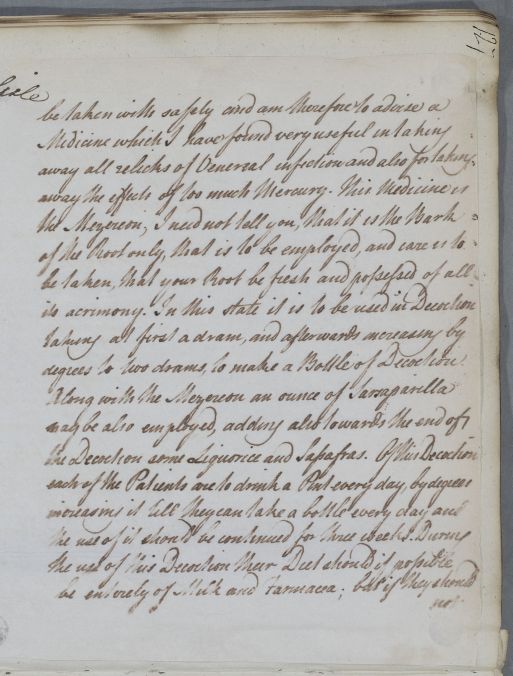 171
be taken with safely and am therefore to advise a
Medicine which I have found very useful in taking
away all relicks of Venereal infection and also for taking
away the effects of too much Mercury. This Medicine is
the Mezereon, I need not tell you, that it is the Bark
of the Root only, that is to be employed, and care is to
be taken, that your Root be fresh and possessed of all
its acrimony. In this state it is to be used in Decoction
taking at first a dram, and afterwards increasing by
degrees to two drams, to make a Bottle of Decoction.
Along with the Mezereon an ounce of Sarsaparilla
may be also employed, adding also towards the end of
the Decoction some Liquorice and Sassafras. Of this Decoction
each of the Patients are to drink a Pint every day, by degrees
increasing it till they can take a bottle every day and
the use of it should be continued for three weeks. During
the use of this Decoction their Diet should if possible
be entirely of Milk and Farinacea; but if they should
not